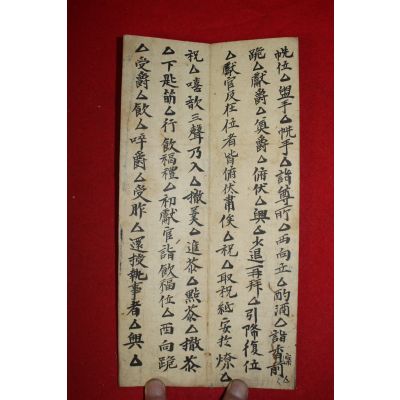 帨位△盥手△帨手△詣尊所△西向立△酌酒△詣香前
跪△獻爵△奠爵△俯伏△興△少退△再拜△引降復位
△獻官及在位者皆俯伏肅俟△祝△取祝紙安於燎△
祝△嘻歆三聲乃入△撤羹△進茶△點茶△撤茶
△下匙筯△行飮福禮△初獻官詣飮福位△西向跪
△受爵△飮△啐爵△受胙△還授執事者△興△